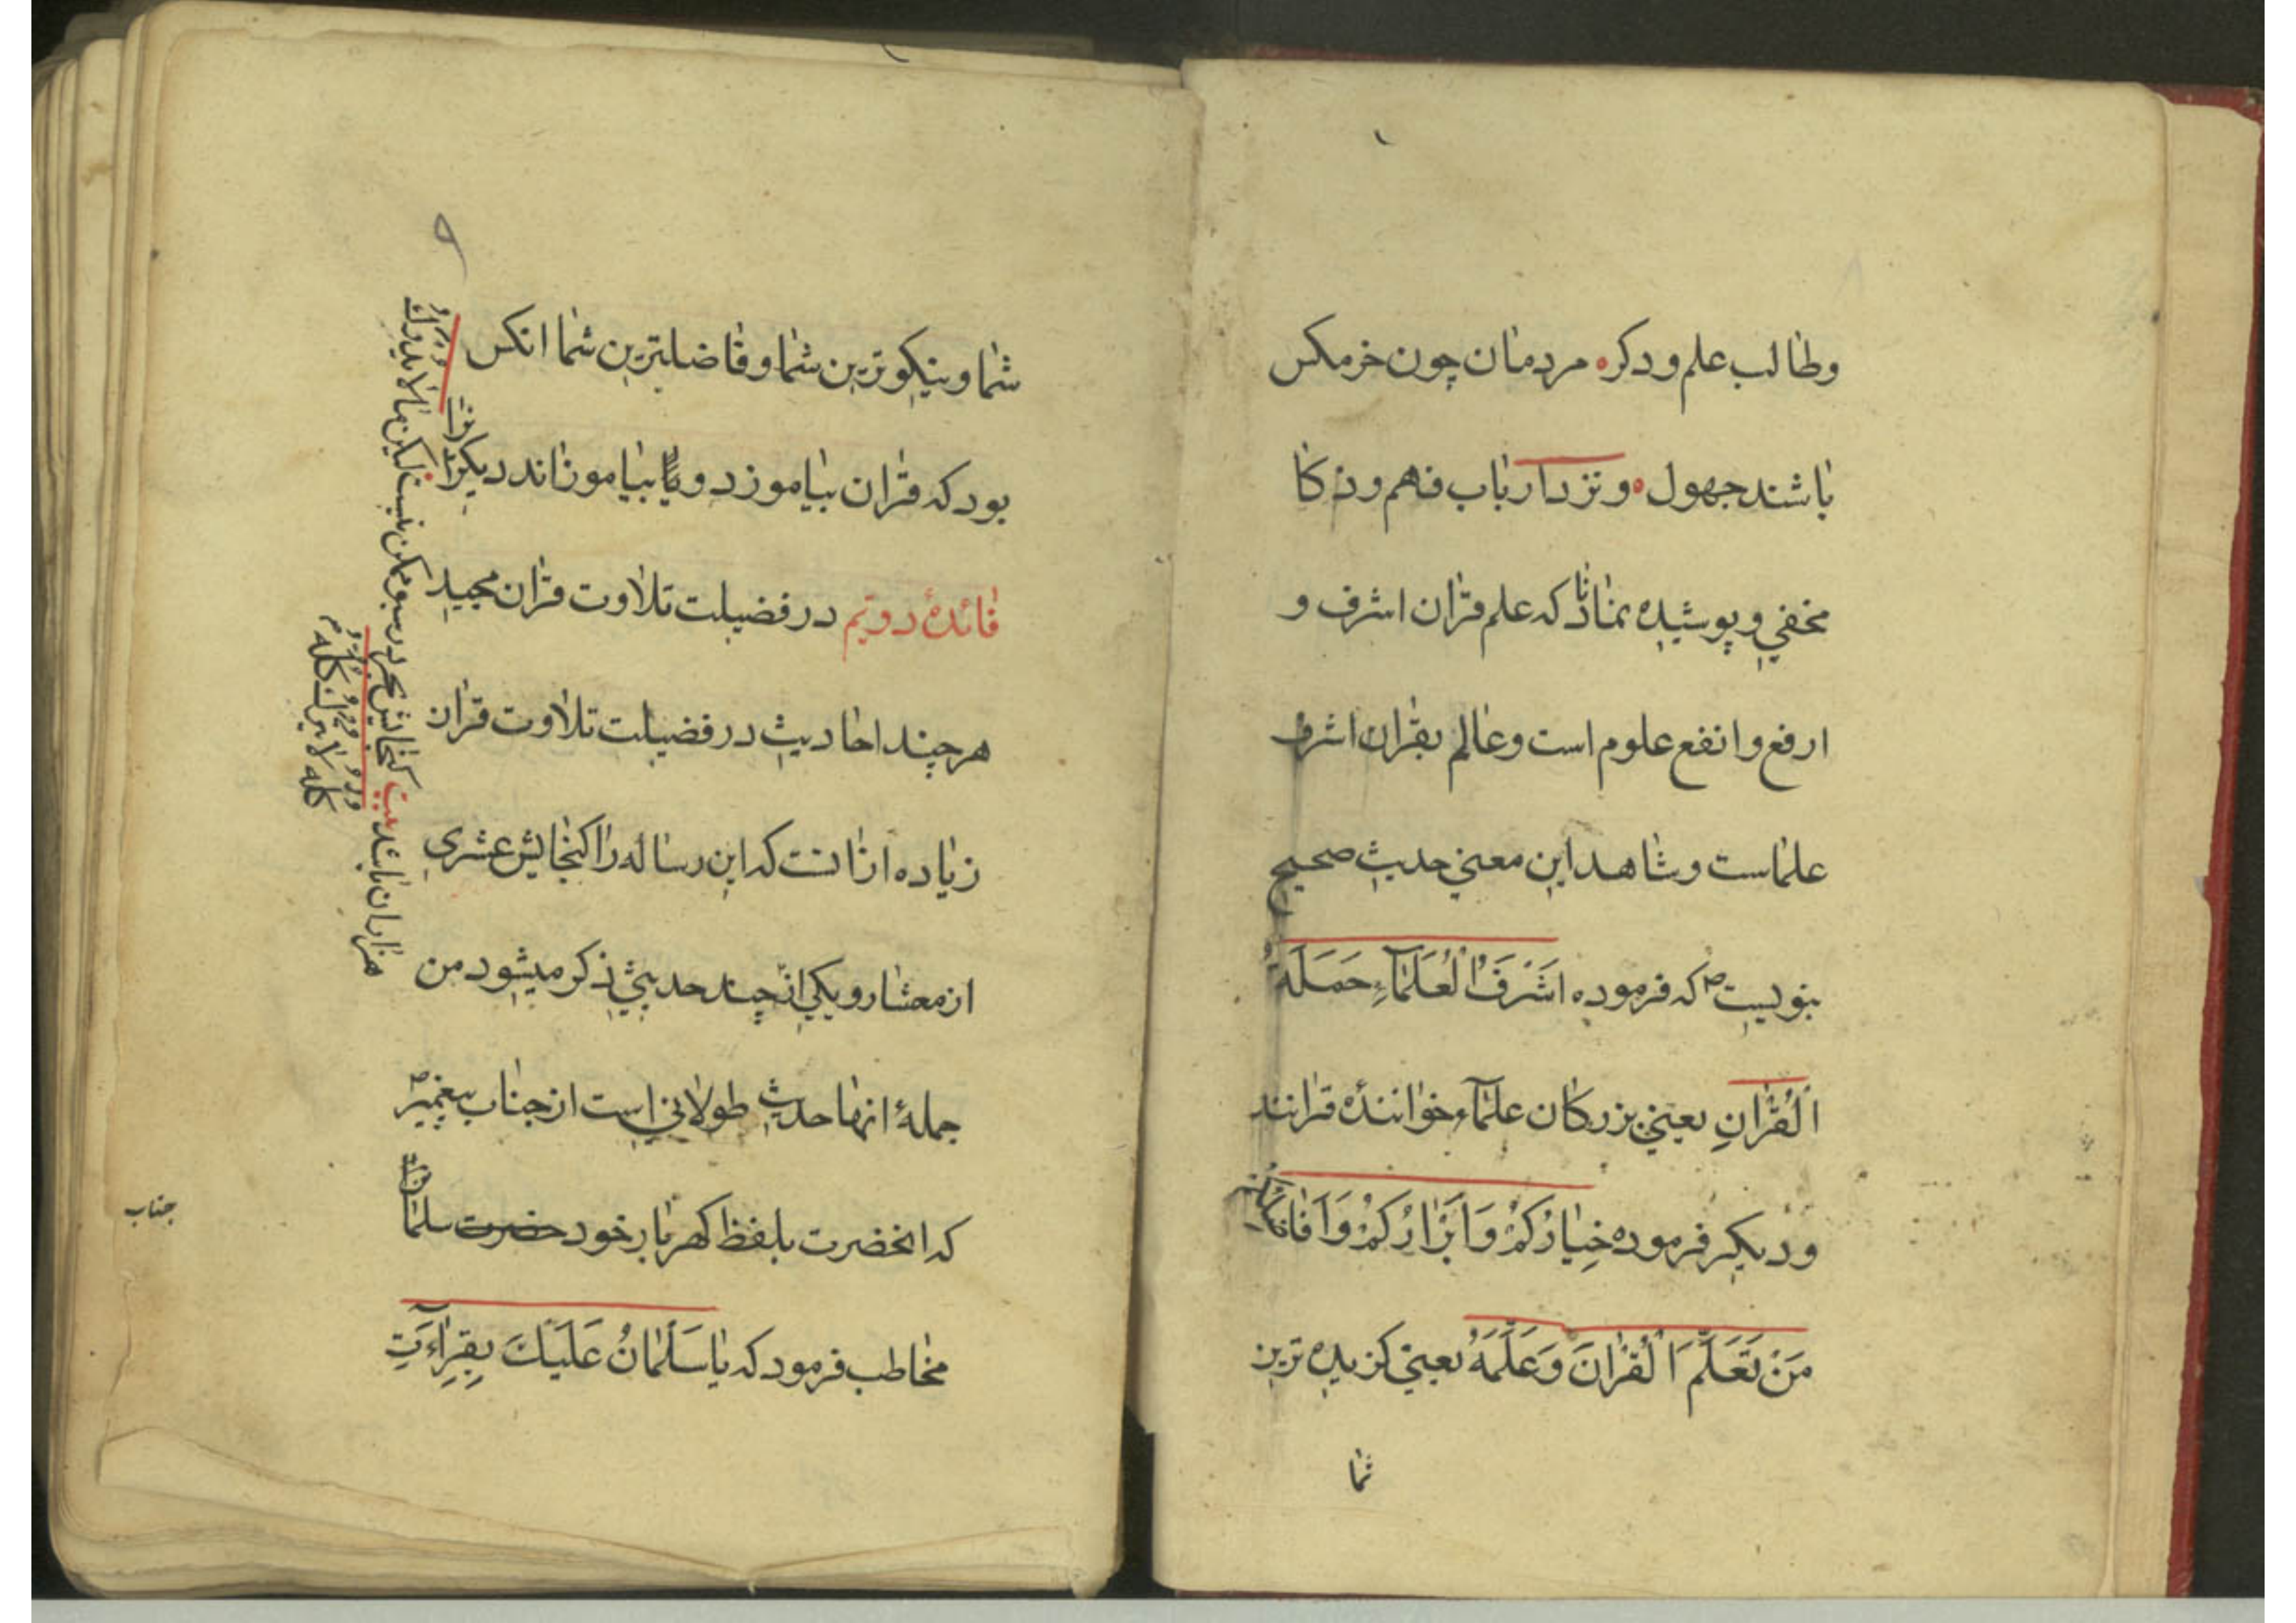 وطالب علم و دکره مردمان چون خرمکس
باشند جهول ه و نزد ارباب فهم و ذکا
مخفي و پوشیده نماناد که علم قران اشرف و
ارفع و انفع علوم است و عالم بقران اشرف
علماست و شاهد این معني حدیث صحیح
بنویست ص که فرموده اَشْرَفُ الْعُلَمآءِ حَمَلَةُ
الْقُرْانِ یعني بزرکان علمآء خوانندهٔ قرانند
و دیکر فرموده خِیارُکُمْ وَ اَبْرارُکُمْ وَ اَفاضِلُکُمْ
مَنْ تَعَلَّمَ الْقُرْانَ وَ عَلَّمَهُ یعني کزیده ترین
شما
۹
شما و نیکوترین شما و فاضلترین شما انکس
بود که قران بیاموزد و یا بیاموزاند دیکریرا
فائدهٔ دویّم در فضیلت تلاوت قران مجید
هر چند احادیث در فضیلت تلاوت قران
زیاده ازانست که این رساله را کنجایش عشری
از معشار و یکي از چند حدیثي ذکر میشود من
جملهٔ انها حدیث طولاني است از جناب پیغمبر ص
که انحضرت بلفظ کهربار خود حضرت سلمان را
مخاطب فرمود که یا سَلْمانُ عَلَیْكَ بِقِرآءَتِ
هزاران باشد بیت کنجایش بحر در سبو ممکن نیست لیکن مالا یدرك
کله لا یترك کله
جناب